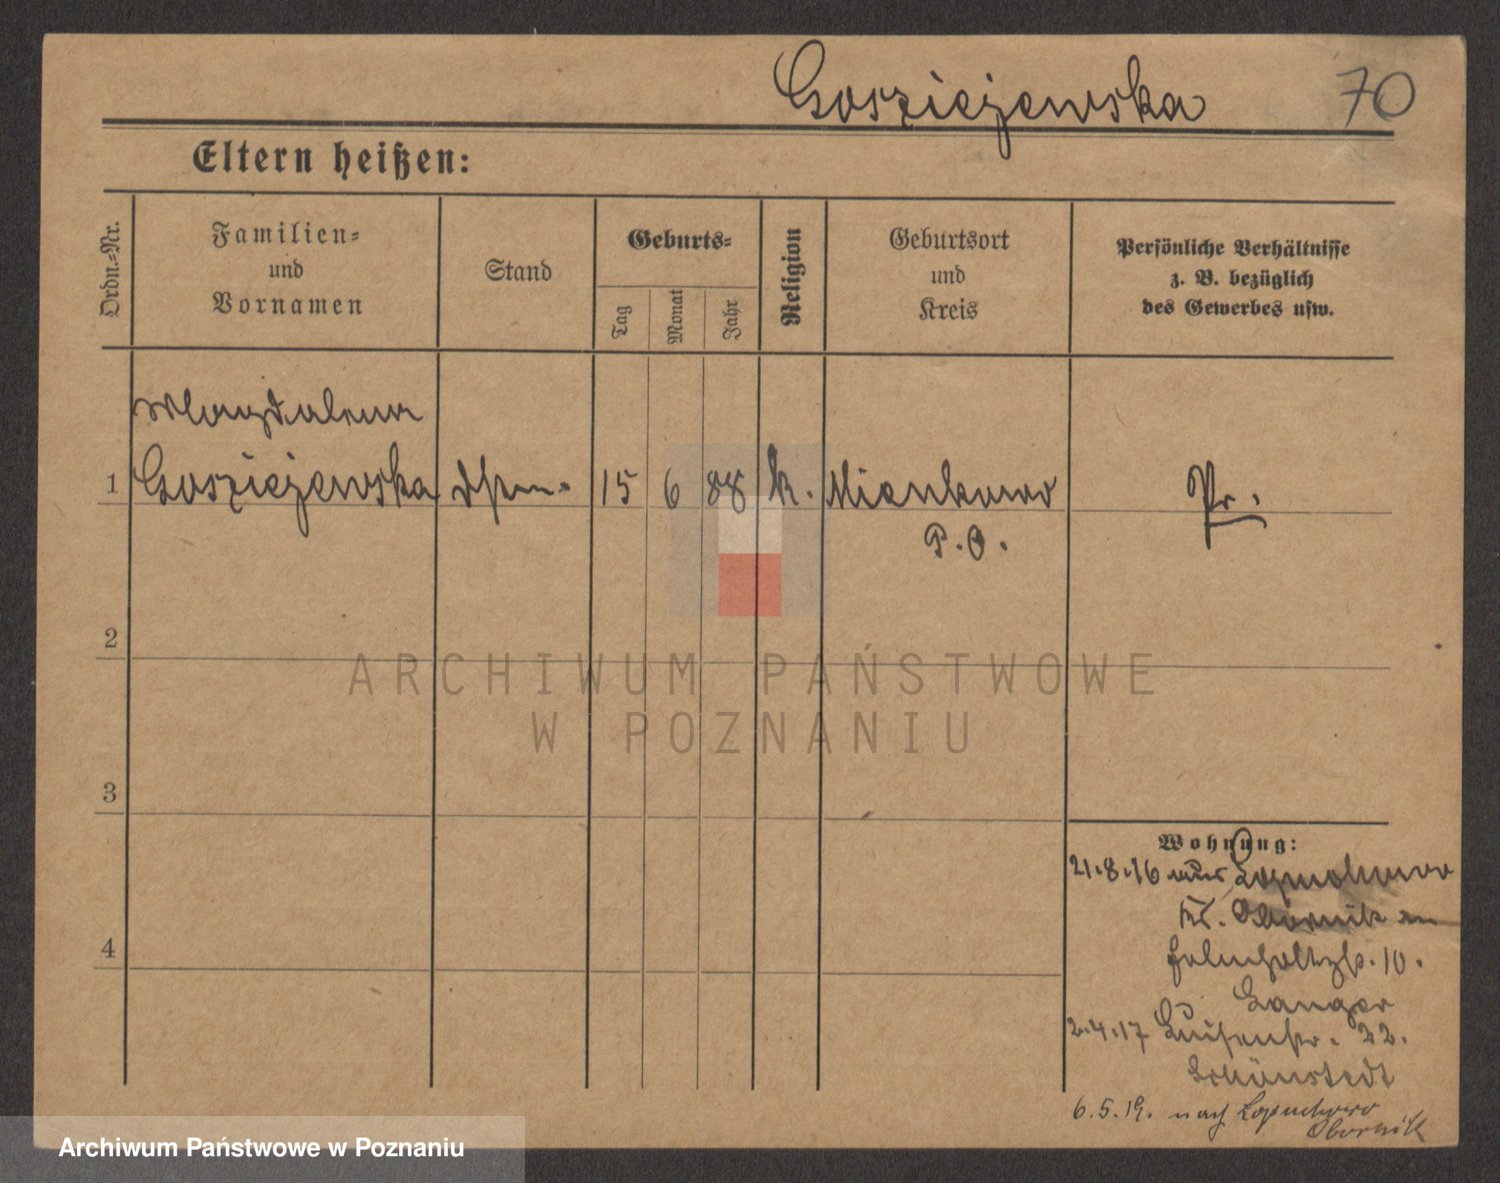 Gosziejewska 70
Eltern heißen:
Ordn.-Nr.
Familien-
und
Vornamen
Stand
Geburts-
Tag
Monat
Jahr
Religion
Geburtsort
und
Kreis
Persönliche Verhältnisse
z. B. bezüglich
des Gewerbes usw.
Magdalena
1 Gosziejewska 15 6 88 k. Miankowo Pr.
P.O.
2
3
4
Wohnung:
21.8.16 aus Lopuchowo
Kr. Obornik
10.
Langer
2.4.17 Luisenstr. 22.
Schönstedt
6.5.19. nach Lopuchowo
Obornik
ARCHIWUM PAŃSTWOWE
W POZNANIU
Archiwum Państwowe w Poznaniu